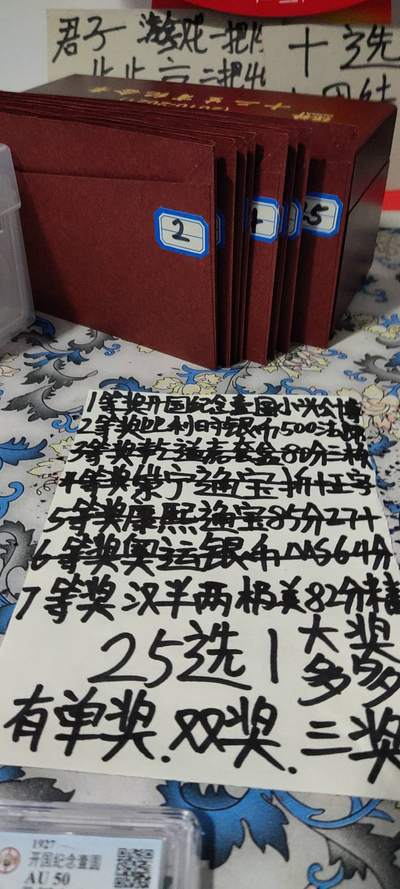 君子 游戏 一把
十选
2
4
25
1等奖开国纪念壹圆小头
2等奖比利时银币500法郎
3等奖乾隆 套盒80分三枚
4等奖崇宁通宝折十五字
5等奖康熙通宝85分27十
6等奖奥运银币 64分
7等奖汉半两极美82分
25选1 大奖多多
有单奖.双奖.三奖
1927
开国纪念壹圆
AU 50